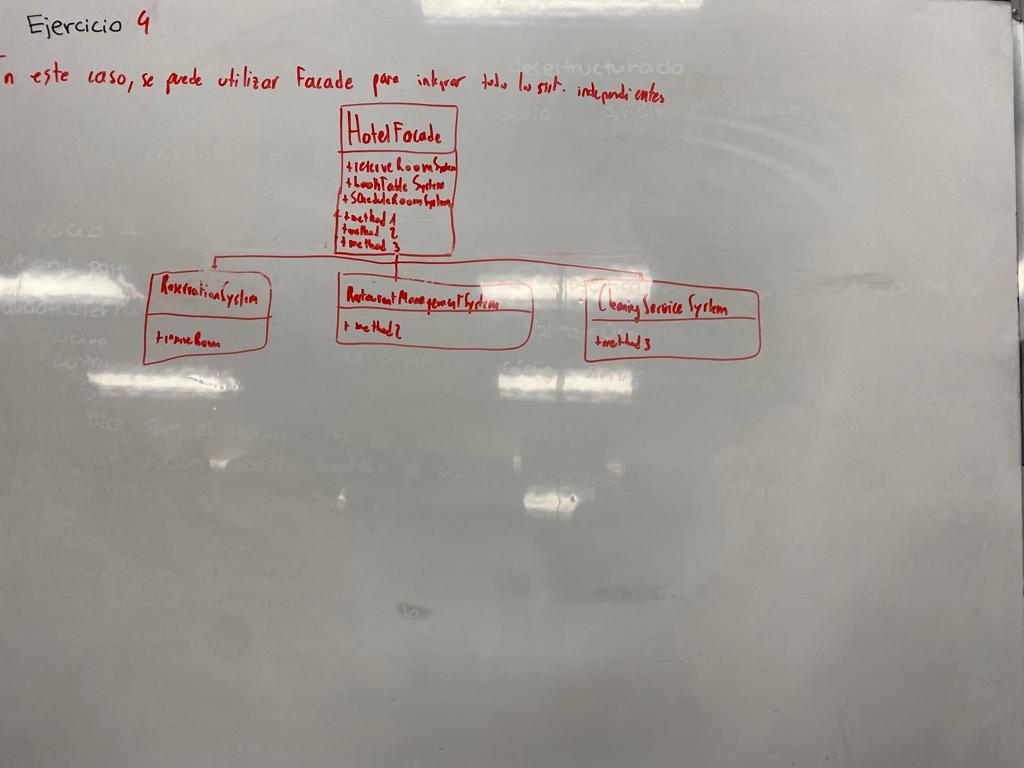 Ejercicio 4
n este caso, se puede utilizar Facade para integrar todo los sist. independientes
HotelFacade
+reserveRoomSystem
+BookTableSystem
+ScheduleRoomSystem
+method 1
+method 2
+method 3
ReservationSystem
+reserveRoom
RestaurantManagementSystem
+ method2
CleaningServiceSystem
+method 3
desestructurado